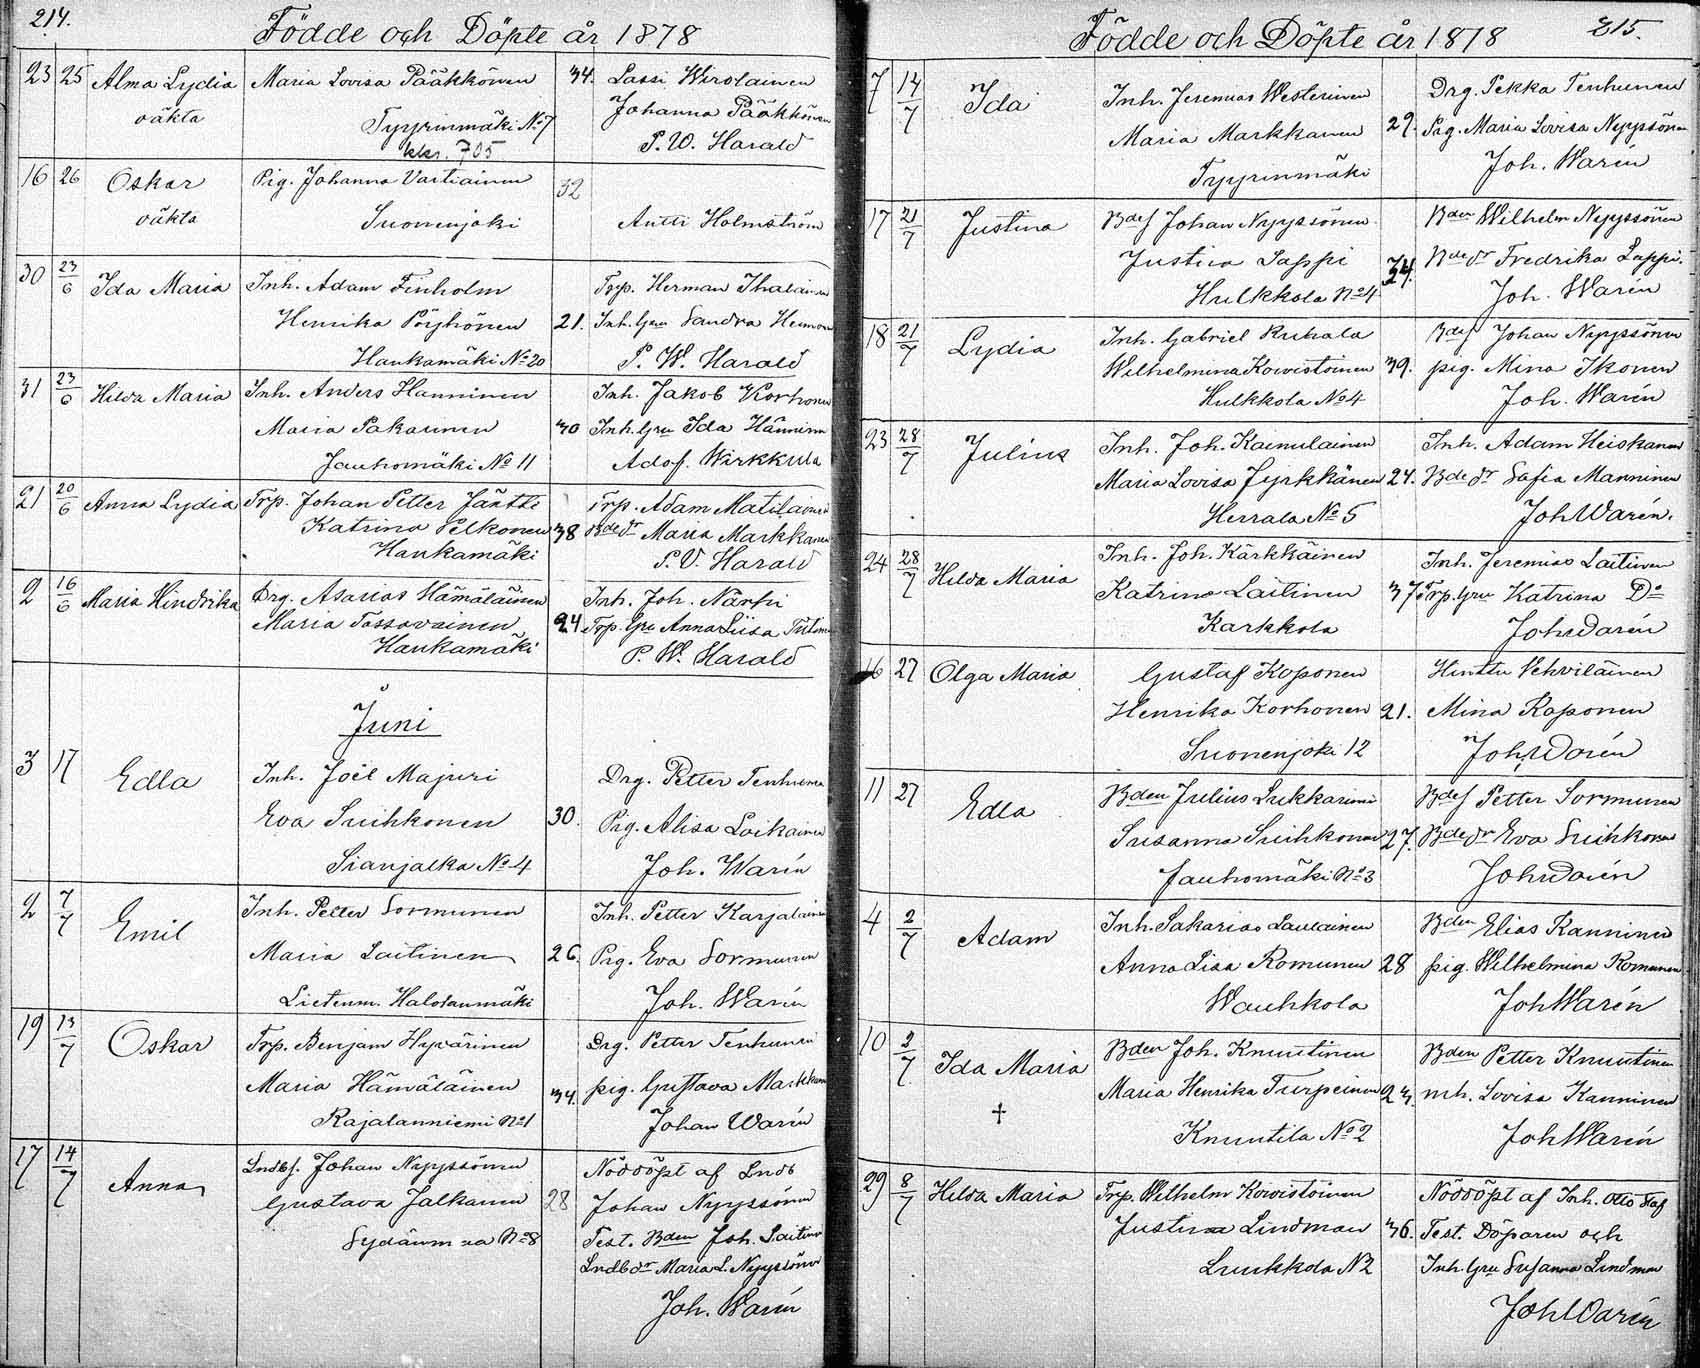 214.
Födde och Döpte år 1878
23 25 Alma Lydia Maria Lovisa Pääkkönen 34. Lassi Wirolainen
oäkta Johanna Pääkkönen
Tyyrinmäki No 7
kkr. 705 P. W. Harald
16 26 Oskar Pig. Johanna Vartiainen 32
oäkta Suonenjoki Antti Holmström
30 23/6 Ida Maria Inh. Adam Finholm Torp. Herman Ihalainen
Henrika Pöyhönen 21. Inh. Gru Sandra
Haukamäki No 20 P. W. Harald
31 23/6 Hilda Maria Inh. Anders Hänninen Inh. Jakob Korhonen
Maria Pakarinen 30 Inh. Gru Ida Hänninen
Jauhomäki No 11 Adof. Wirkkula
21 20/6 Anna Lydia Trp. Johan Petter Jäntti Trp. Adam Matilainen
Katrina Pelkonen 38 Bde dr Maria Markkanen
Haukamäki P. V. Harald
2 16/6 Maria Hindrika Drg. Asarias Hämäläinen Inh. Joh. Närhi
Maria Tossavainen 24 Trp. Gru Anna Liisa
Haukamäki P. W. Harald
Juni
3 17 Edla Inh. Joël Majuri Drg. Petter Tenhunen
Eva Suihkonen 30. Pig. Alisa Laikainen
Sianjalka No 4 Joh. Warén
2 7/7 Emil Inh. Petter Sormunen Inh. Petter Karjalainen
Maria Laitinen 26. Pig. Eva Sormunen
Lieteenm. Halolanmäki Joh. Warén
19 13/7 Oskar Trp. Benjam Hyvärinen Drg. Petter Tenhunen
Maria Hämäläinen 34. pig. Gustava Markkanen
Rajalanniemi No 1 Johan Warén
17 14/7 Anna Lndbf. Johan Nyyssönen Nöddöpt af Lndb
Gustava Jalkanen 28 Johan Nyyssönen
Sydänmaa No 8 Test. Bden Joh. Laitinen
Lndb dr Maria L. Nyyssönen
Joh. Warén
215.
Födde och Döpte år 1878
7 14/7 Ida Inh. Jeremias Westerinen Drg. Pekka Tenhunen
Maria Markkanen 29. Pig. Maria Lovisa Nyyssönen
Tyyrinmäki Joh. Warén
17 21/7 Justina Bdef Johan Nyyssönen Bden Wilhelm Nyyssönen
Justina Lappi 34. Bde dr Fredrika Lappi.
Hulkkola No 4 Joh. Warén
18 21/7 Lydia Inh. Gabriel Ruhala Bdef Johan Nyyssönen
Wilhelmina Kowistoinen 39. pig. Mina Ikonen
Hulkkola No 4 Joh. Warén
23 28/7 Julius Inh. Joh. Kainulainen Inh. Adam Heiskanen
Maria Lovisa Jyrkkänen 24. Bde dr Sofia Manninen
Herrala No 5 Joh Warén.
24 28/7 Hilda Maria Inh. Joh. Kärkkäinen Inh. Jeremias Laitinen
Katrina Laitinen 37 Trp. Gru Katrina Do
Karkkola Joh Warén
16 27 Olga Maria Gustaf Koponen Hinttu Vehviläinen
Henrika Korhonen 21. Mina Koponen
Suonenjoki 12 Joh. Warén
11 27 Edla Bden Julius Lukkarinen Bdef Petter Sormunen
Susanna Suihkonen 27. Bde dr Eva Suihkonen
Jauhomäki No 3 Joh Warén
4 2/7 Adam Inh. Sakarias Laulainen Bden Elias Kanninen
Anna Lisa Romunen 28 pig. Wilhelmina Romunen
Wauhkola Joh Warén
10 2/7 Ida Maria Bden Joh. Knuutinen Bden Petter Knuutinen
Maria Henrika Turpeinen 23. mh. Lovisa Kanninen
✝ Knuutila No 2 Joh Warén
29 8/7 Hilda Maria Trp. Wilhelm Kowistoinen Nöddöpt af Inh. Otto
Justina Lindman 36. Test. Döparen och
Luukkola N 2 Inh Gru Susanna Lindman
Joh Warén